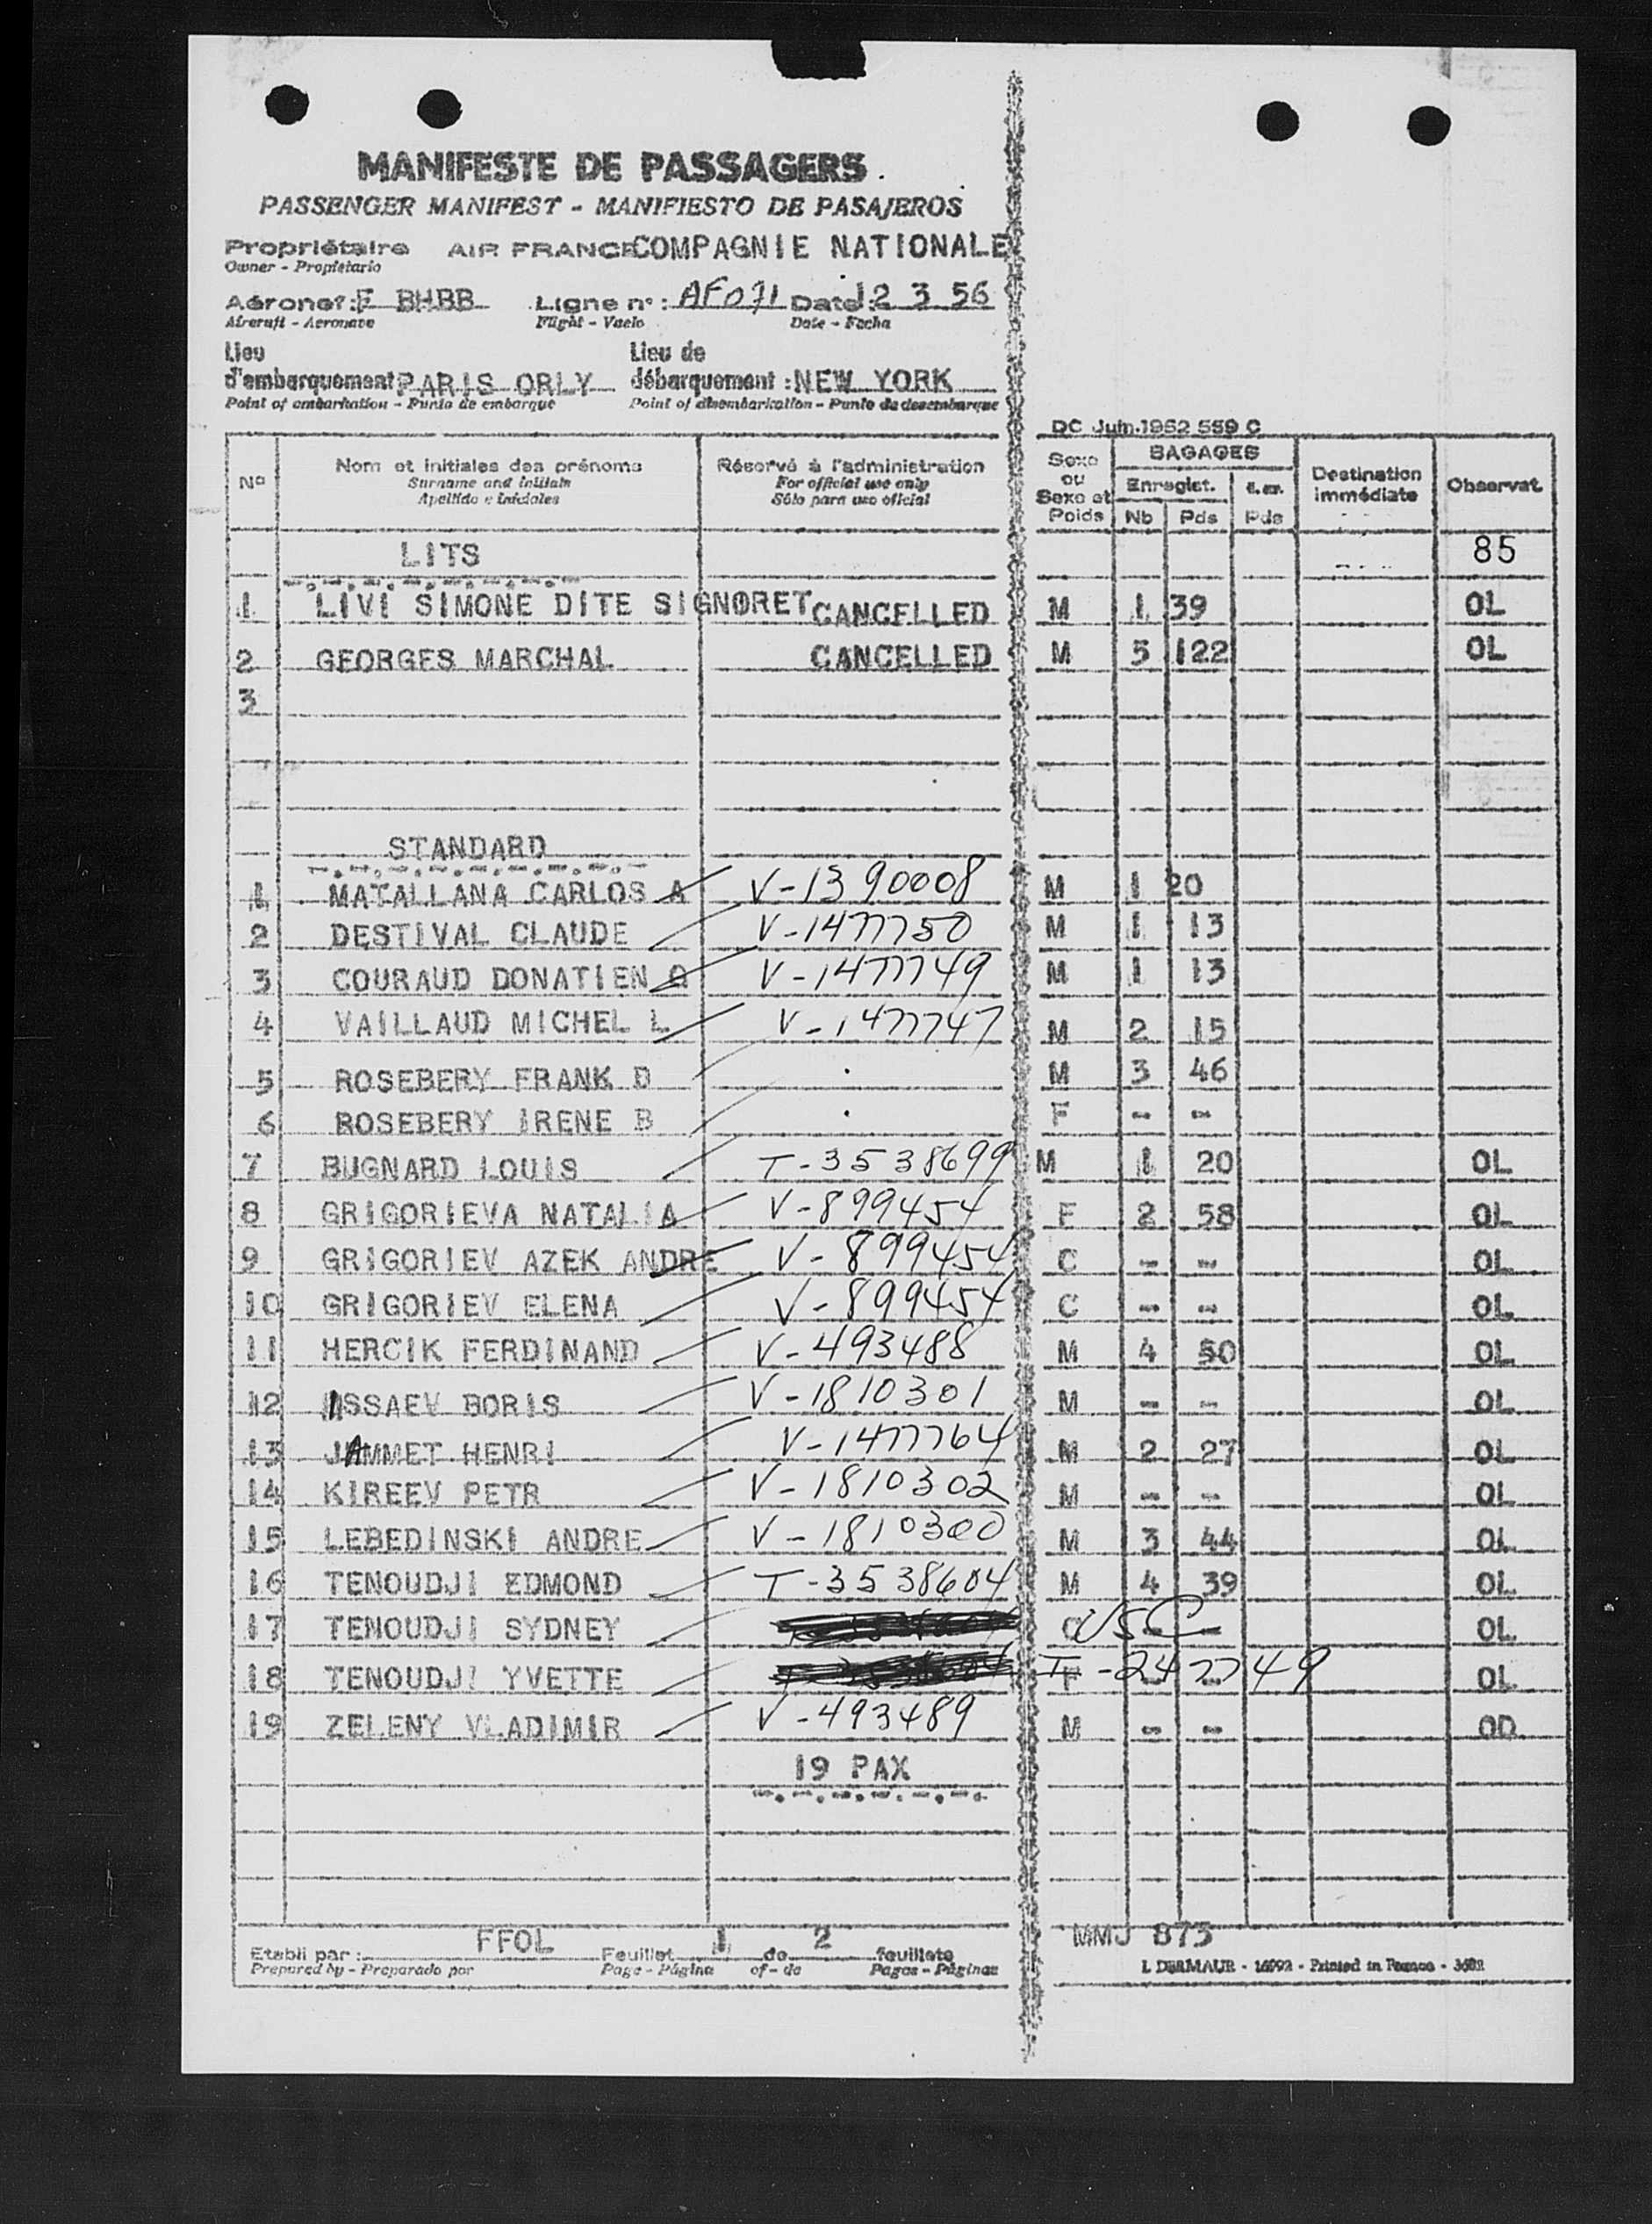 MANIFESTE DE PASSAGERS
PASSENGER MANIFEST - MANIFIESTO DE PASAJEROS
Propriétaire AIR FRANCE COMPAGNIE NATIONALE
Owner - Propietario
Aéronef : F BHBB Ligne n° : AF071 Date : 12 3 56
Aircraft - Aeronave Flight - Vuelo Date - Fecha
Lieu d'embarquement PARIS ORLY Lieu de débarquement : NEW YORK
Point of embarkation - Punto de embarque Point of disembarkation - Punto de desembarque
DC Juin.1952 559 C
N° Nom et initiales des prénoms Réservé à l'administration Sexe ou Sexe et Poids BAGAGES Destination immédiate Observat.
Surname and initials For official use only Enregist.
Apellido e iniciales Sólo para uso oficial Nb Pds Pds
LITS 85
1 LIVI SIMONE DITE SIGNORET CANCELLED M 1 39 OL
2 GEORGES MARCHAL CANCELLED M 5 122 OL
3
STANDARD
1 MATALLANA CARLOS A V-1390008 M 1 20
2 DESTIVAL CLAUDE V-1477750 M 1 13
3 COURAUD DONATIEN V-1477749 M 1 13
4 VAILLAUD MICHEL L V-1477747 M 2 15
5 ROSEBERY FRANK D M 3 46
6 ROSEBERY IRENE B F - -
7 BUGNARD LOUIS T-3538699 M 1 20 OL
8 GRIGORIEVA NATALIA V-899454 F 2 58 OL
9 GRIGORIEV AZEK ANDRE V-899454 C - - OL
10 GRIGORIEV ELENA V-899454 C - - OL
11 HERCIK FERDINAND V-493488 M 4 50 OL
12 ISSAEV BORIS V-1810301 M - - OL
13 JAMMET HENRI V-1477764 M 2 27 OL
14 KIREEV PETR V-1810302 M - - OL
15 LEBEDINSKI ANDRE V-1810300 M 3 44 OL
16 TENOUDJI EDMOND T-3538604 M 4 39 OL
17 TENOUDJI SYDNEY C USC - OL
18 TENOUDJI YVETTE F T-247749 OL
19 ZELENY VLADIMIR V-493489 M - - OD
19 PAX
Etabli par : FFOL Feuillet 1 de 2 feuillets MMJ 873
Prepared by - Preparado por Page - Página of - de Pages - Páginas L DERMAUR - Printed in France